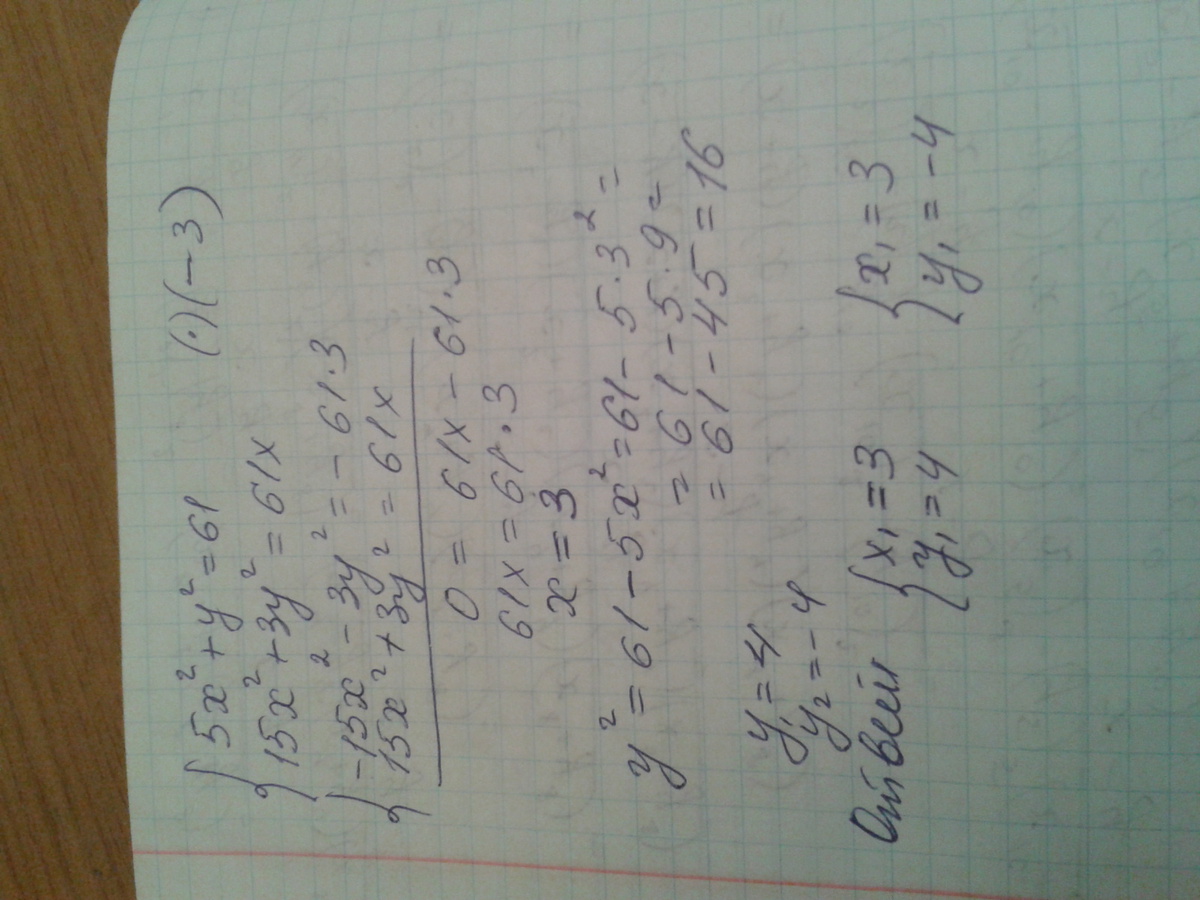 { 5x² + y² = 61 (·)(−3)
15x² + 3y² = 61x
{ −15x² − 3y² = −61·3
15x² + 3y² = 61x
0 = 61x − 61·3
61x = 61·3
x = 3
y² = 61 − 5x² = 61 − 5·3² =
= 61 − 5·9 =
= 61 − 45 = 16
y₁ = 4
y₂ = −4
Ответ { x₁ = 3 { x₁ = 3
y₁ = 4 y₁ = −4